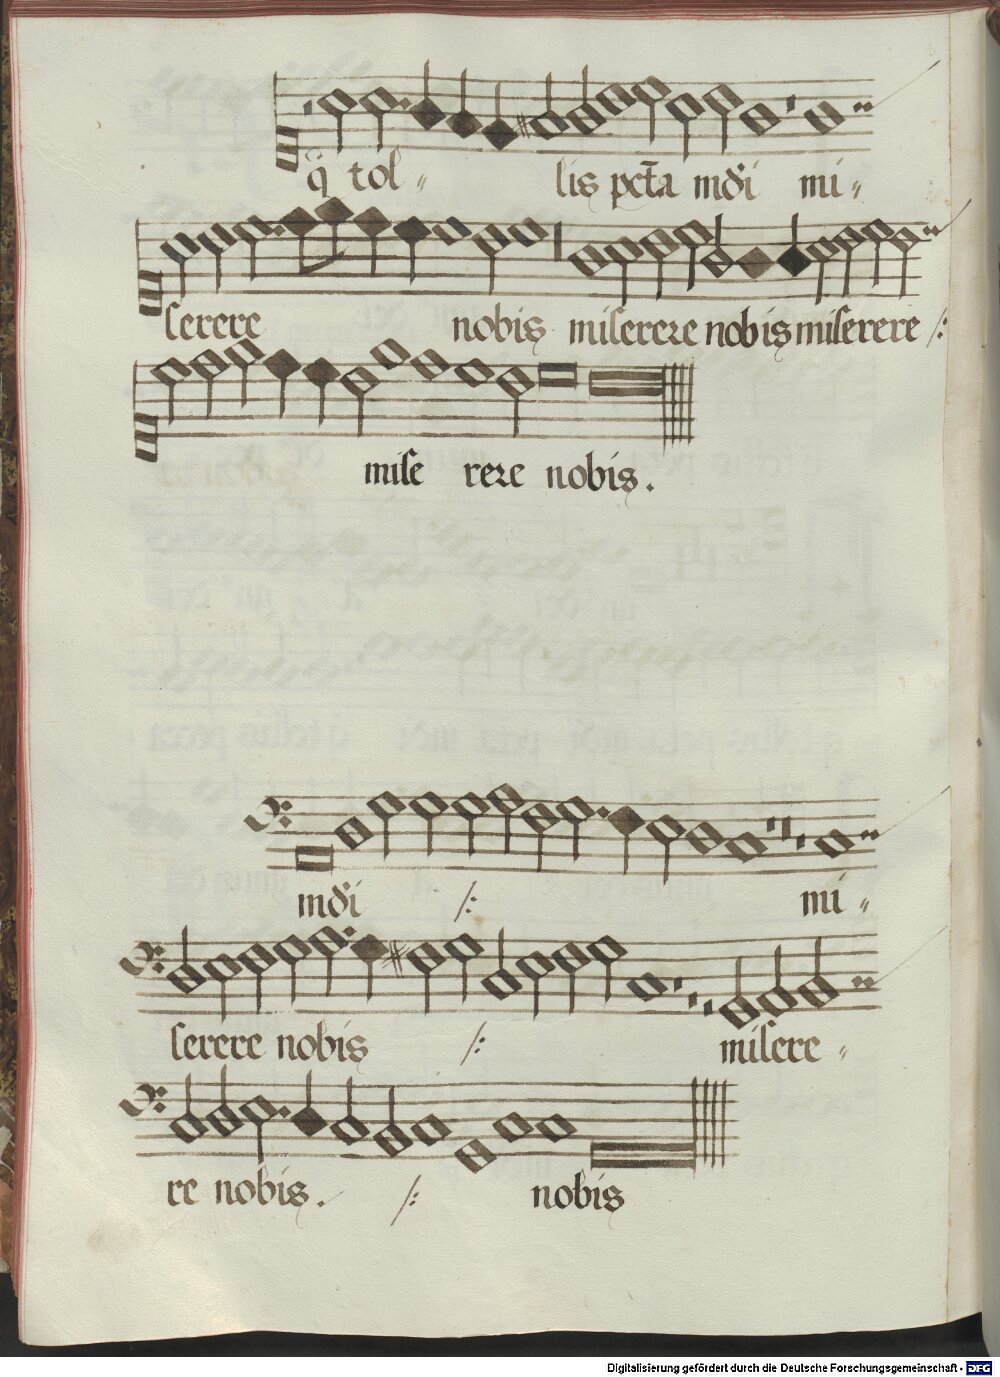 q̃ tol〃 lis pct̃a mdĩ mi〃
serere nobis miserere nobis miserere /:
mise rere nobis.
mdĩ /: mi〃
serere nobis /: misere〃
re nobis. /: nobis
Digitalisierung gefördert durch die Deutsche Forschungsgemeinschaft - DFG